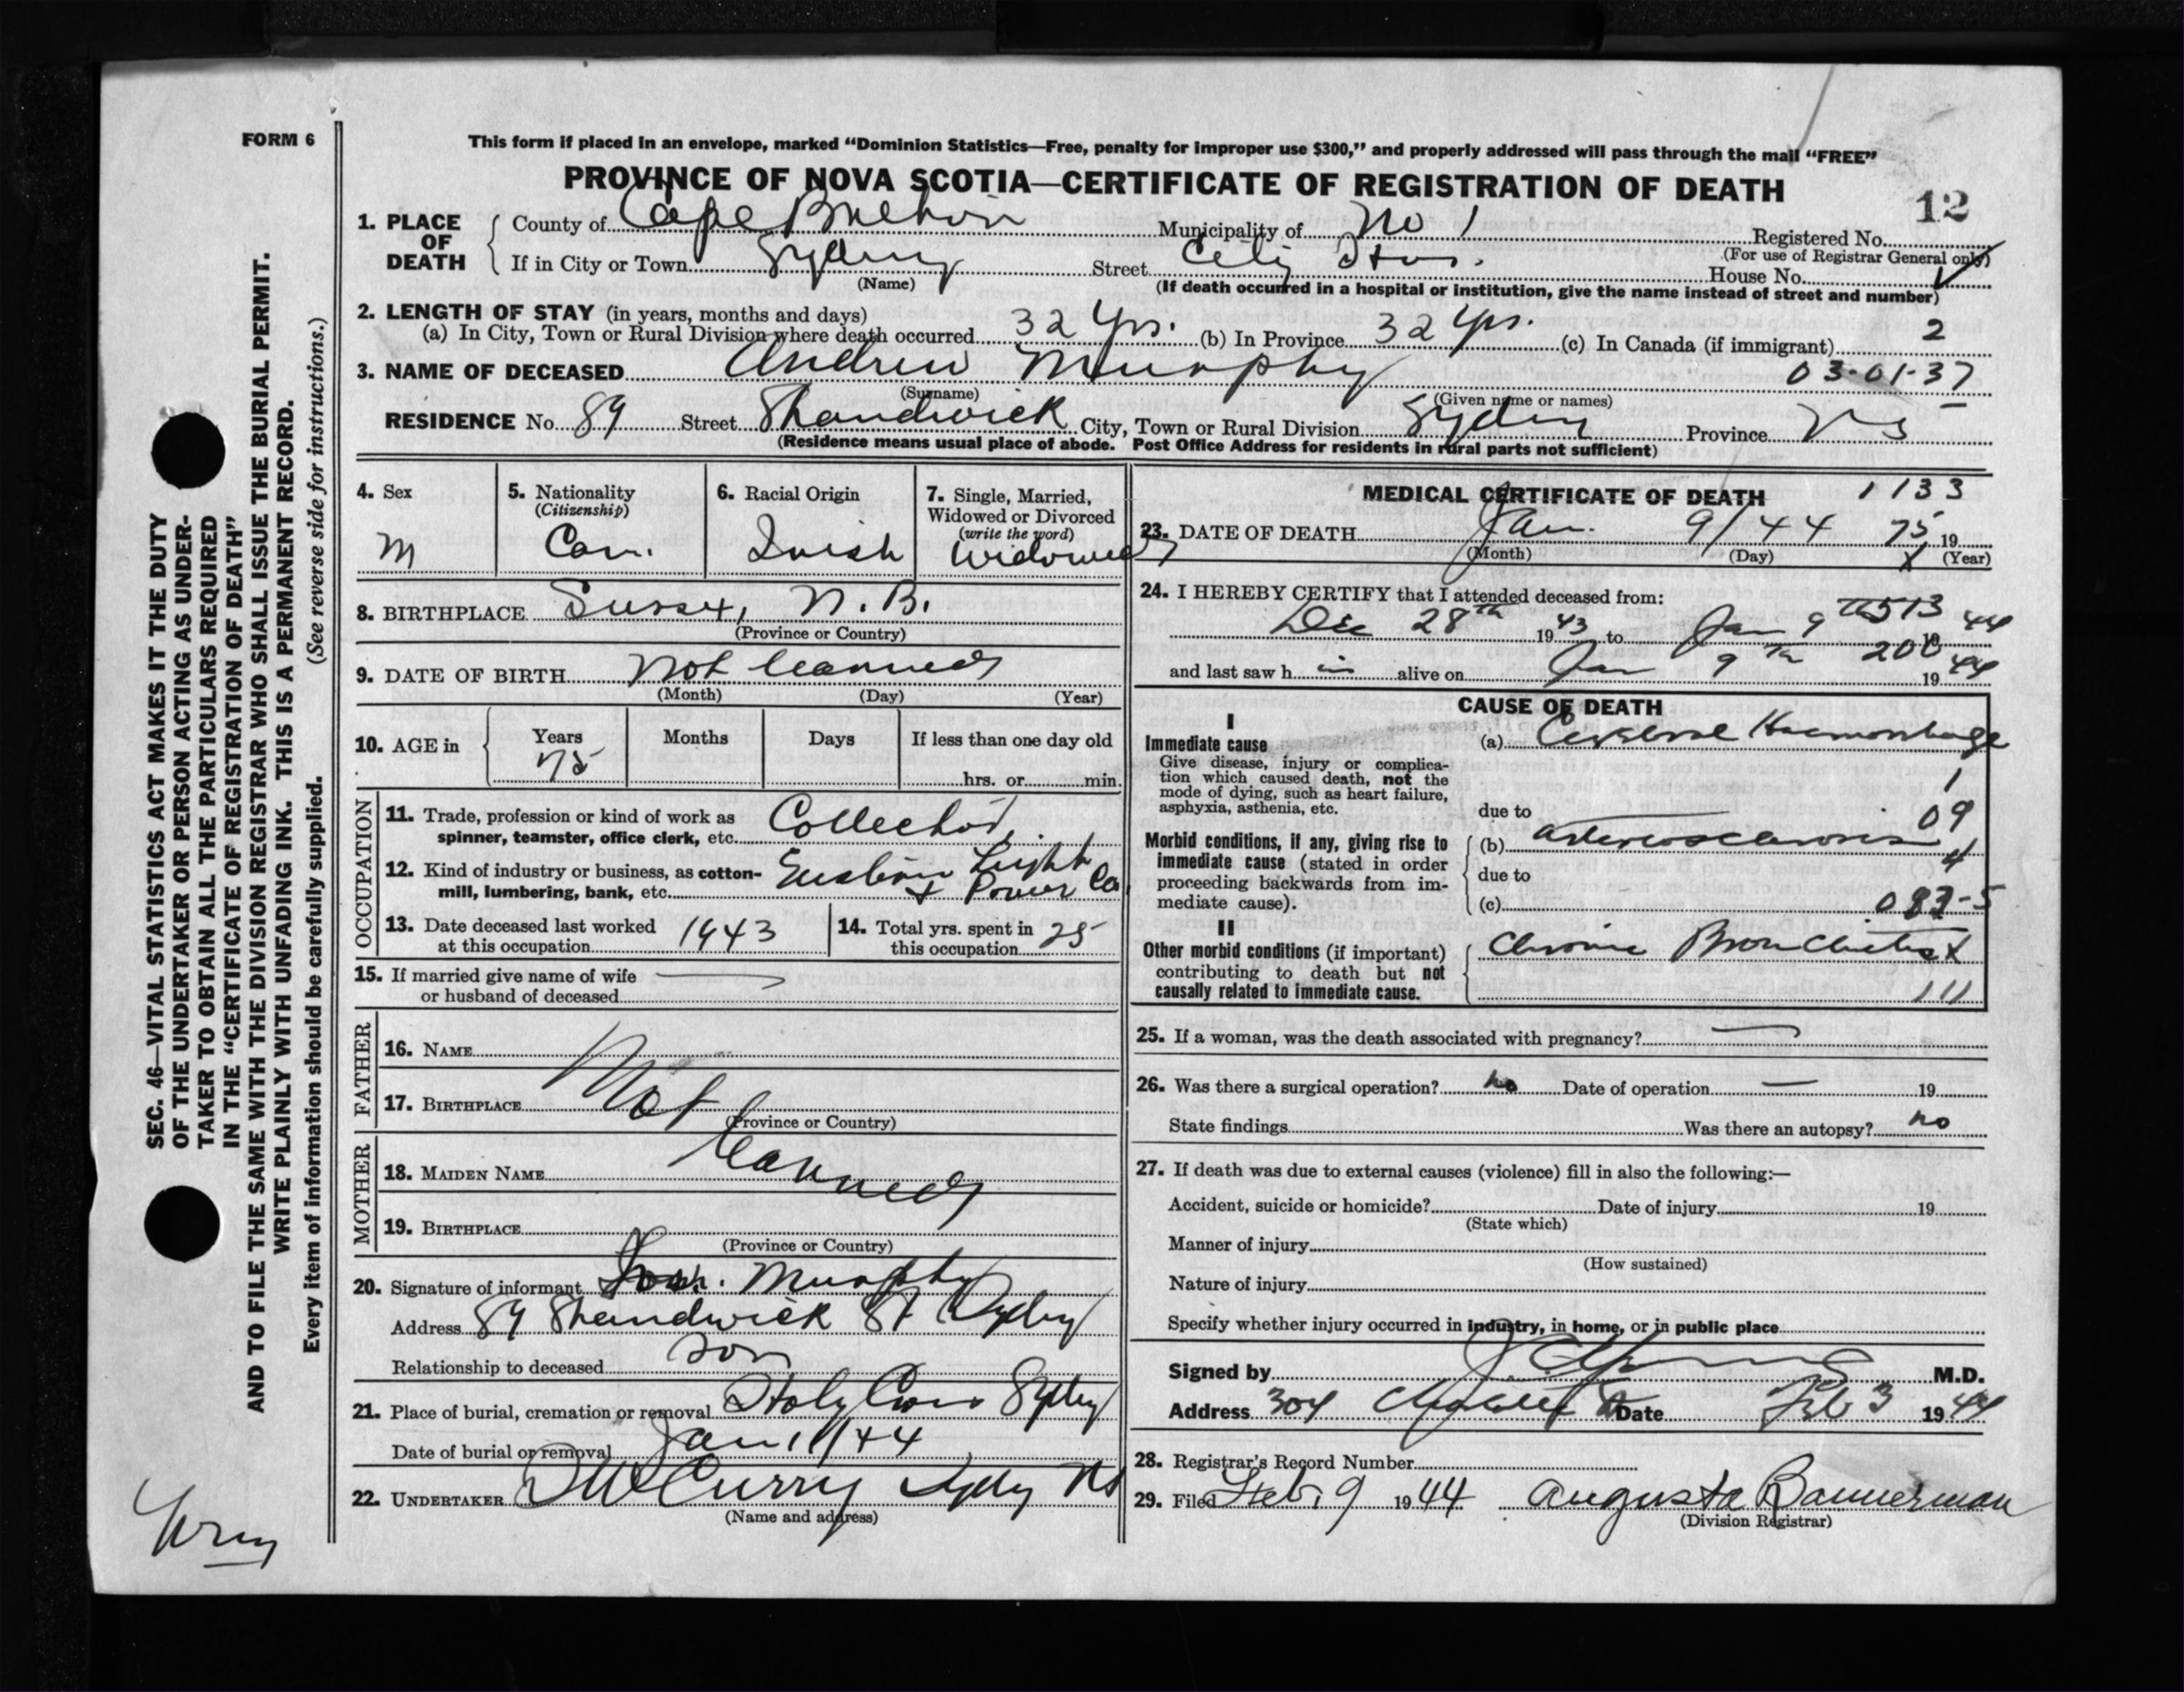 FORM 6
This form if placed in an envelope, marked “Dominion Statistics—Free, penalty for improper use $300,” and properly addressed will pass through the mail “FREE”
PROVINCE OF NOVA SCOTIA—CERTIFICATE OF REGISTRATION OF DEATH
12
1. PLACE OF DEATH
County of Cape Breton Municipality of No 1 Registered No.
(For use of Registrar General only)
If in City or Town Sydney Street City Hos. House No.
(Name) (If death occurred in a hospital or institution, give the name instead of street and number)
2. LENGTH OF STAY (in years, months and days)
(a) In City, Town or Rural Division where death occurred 32 yrs. (b) In Province 32 yrs. (c) In Canada (if immigrant) 2
3. NAME OF DECEASED Andrew Murphy 03-01-37
(Surname) (Given name or names)
RESIDENCE No. 89 Street Shandwick City, Town or Rural Division Sydney Province NS
(Residence means usual place of abode. Post Office Address for residents in rural parts not sufficient)
4. Sex
M
5. Nationality
(Citizenship)
Can.
6. Racial Origin
Irish
7. Single, Married,
Widowed or Divorced
(write the word)
Widowed
8. BIRTHPLACE Sussex, N.B.
(Province or Country)
9. DATE OF BIRTH Not learned
(Month) (Day) (Year)
10. AGE in
Years Months Days If less than one day old
75 hrs. or min.
OCCUPATION
11. Trade, profession or kind of work as
spinner, teamster, office clerk, etc. Collector
12. Kind of industry or business, as cotton-
mill, lumbering, bank, etc. Eastern Light
+ Power Co
13. Date deceased last worked
at this occupation 1943
14. Total yrs. spent in
this occupation 25
15. If married give name of wife
or husband of deceased
FATHER
16. NAME
17. BIRTHPLACE Not
(Province or Country)
MOTHER
18. MAIDEN NAME learned
19. BIRTHPLACE
(Province or Country)
20. Signature of informant Murphy
Address 89 Shandwick St Sydney
Relationship to deceased son
21. Place of burial, cremation or removal Holy Cross Sydney
Date of burial or removal Jan 11/44
22. UNDERTAKER Curry Sydney NS
(Name and address)
MEDICAL CERTIFICATE OF DEATH 1133
23. DATE OF DEATH Jan. 9/44 75 19
(Month) (Day) X (Year)
24. I HEREBY CERTIFY that I attended deceased from:
Dec 28th 1943 to Jan 9th 513 1944
and last saw h im alive on Jan 9th 200 1944
CAUSE OF DEATH
I
Immediate cause
Give disease, injury or complica-
tion which caused death, not the
mode of dying, such as heart failure,
asphyxia, asthenia, etc.
(a) Cerebral Haemorrhage
1
due to
09
Morbid conditions, if any, giving rise to
immediate cause (stated in order
proceeding backwards from im-
mediate cause).
(b) arteriosclerosis 4
due to
(c) 083-5
II
Other morbid conditions (if important)
contributing to death but not
causally related to immediate cause.
Chronic Bronchitis X
111
25. If a woman, was the death associated with pregnancy?
26. Was there a surgical operation? no Date of operation — 19
State findings Was there an autopsy? no
27. If death was due to external causes (violence) fill in also the following:—
Accident, suicide or homicide? Date of injury 19
(State which)
Manner of injury
(How sustained)
Nature of injury
Specify whether injury occurred in industry, in home, or in public place
Signed by M.D.
Address 304 Charlotte St Date Feb 3 1944
28. Registrar's Record Number
29. Filed Feb. 9 1944 Augusta Bannerman
(Division Registrar)
SEC. 46—VITAL STATISTICS ACT MAKES IT THE DUTY
OF THE UNDERTAKER OR PERSON ACTING AS UNDER-
TAKER TO OBTAIN ALL THE PARTICULARS REQUIRED
IN THE “CERTIFICATE OF REGISTRATION OF DEATH”
AND TO FILE THE SAME WITH THE DIVISION REGISTRAR WHO SHALL ISSUE THE BURIAL PERMIT.
WRITE PLAINLY WITH UNFADING INK. THIS IS A PERMANENT RECORD.
Every item of information should be carefully supplied. (See reverse side for instructions.)